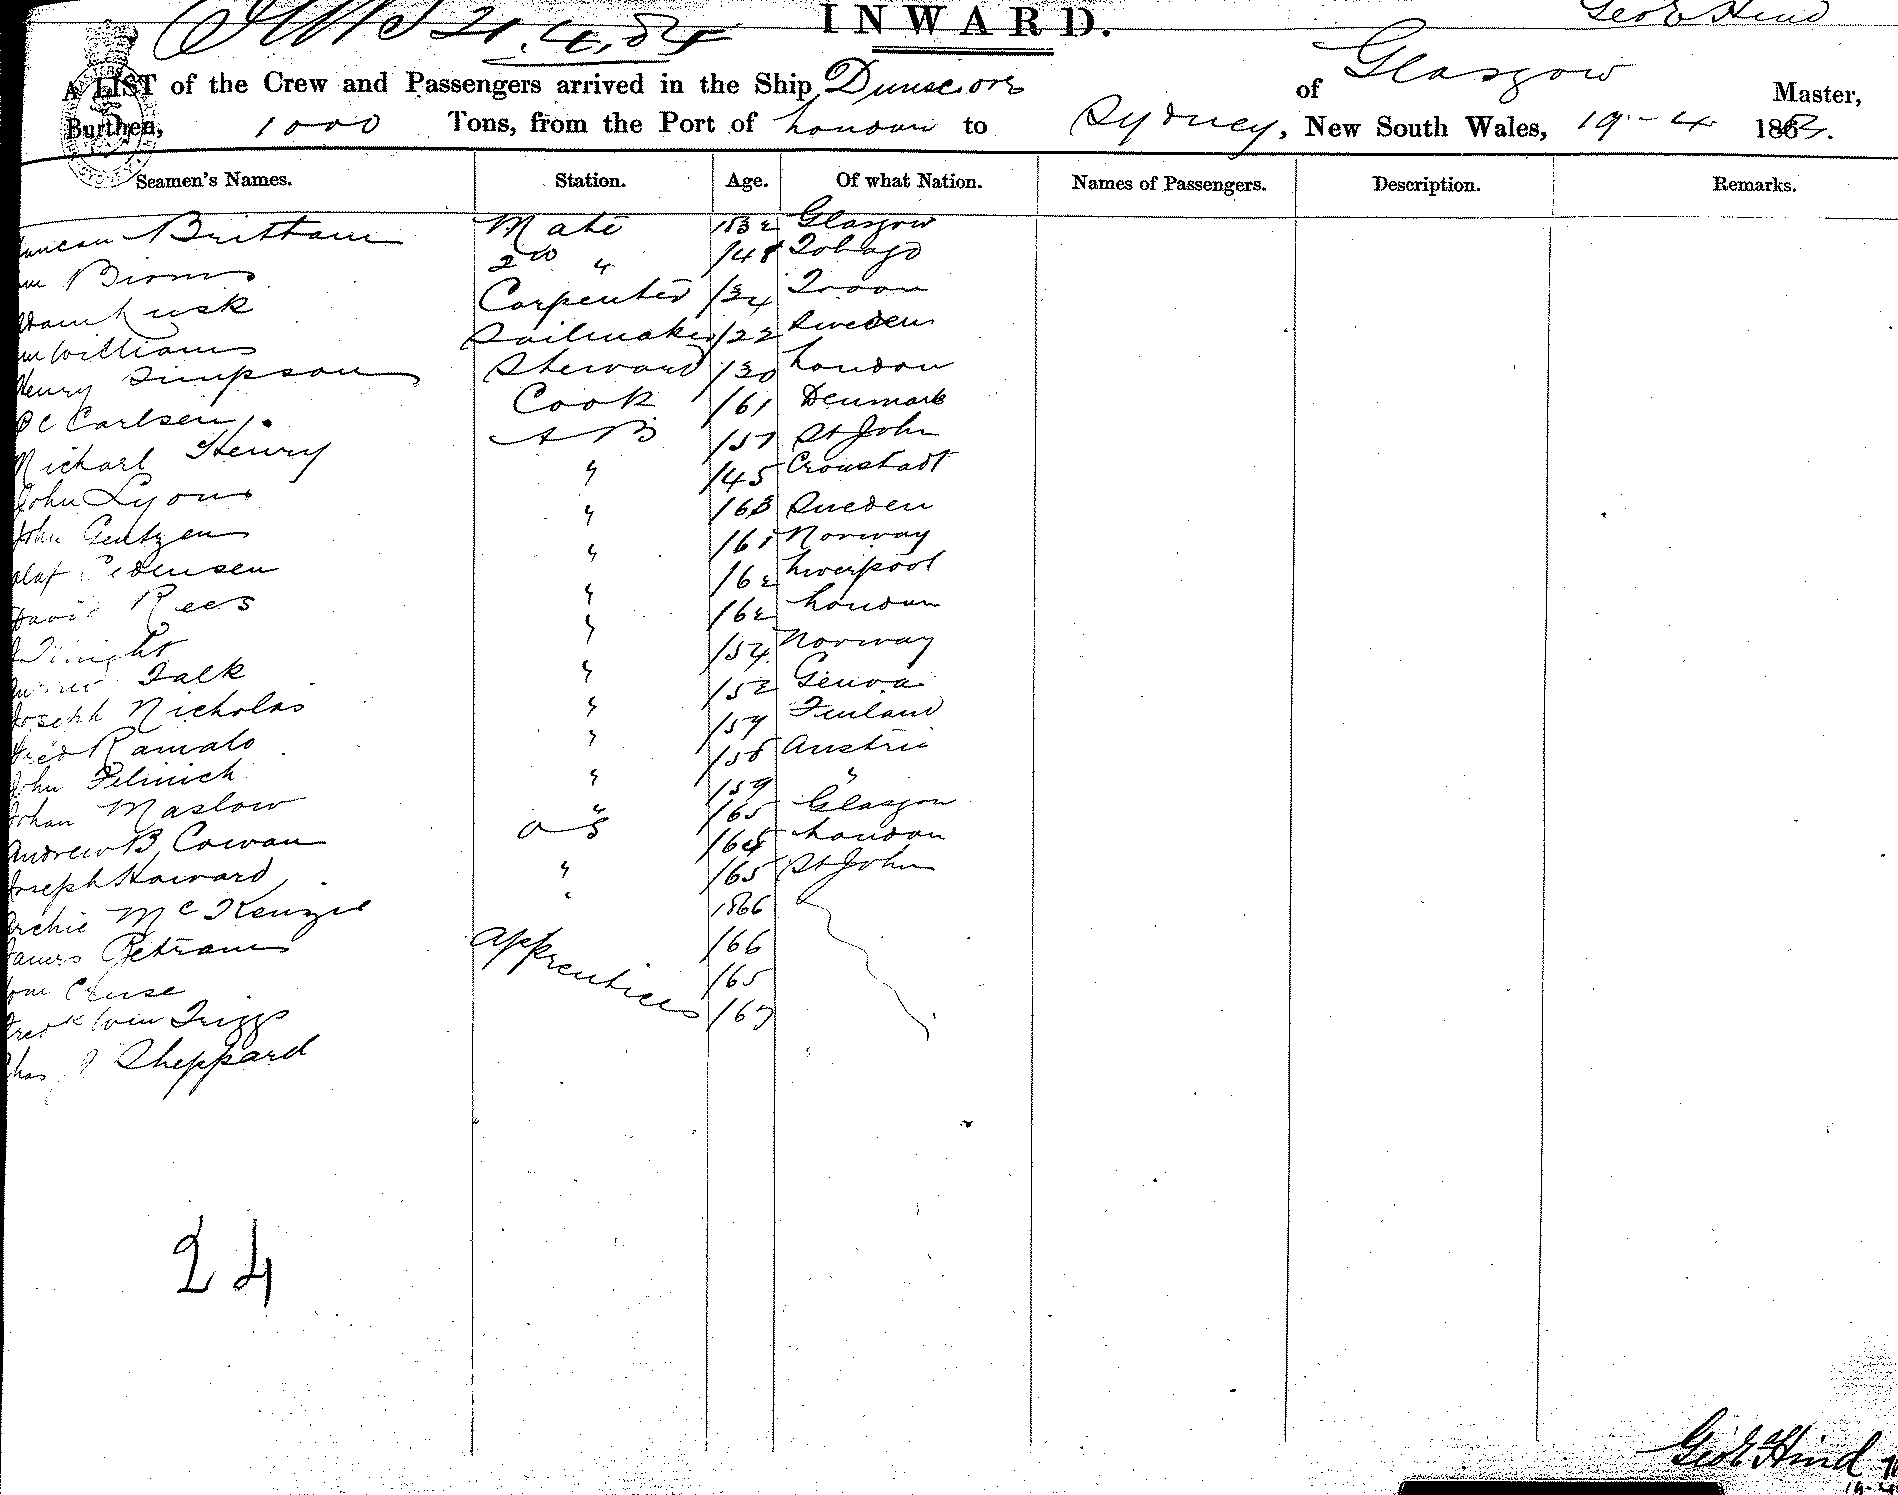 21.4.84
INWARD.
Geo E Hind
A LIST of the Crew and Passengers arrived in the Ship Dunscore of Glasgow Master,
Burthen, 1000 Tons, from the Port of London to Sydney, New South Wales, 19-4 186
Seamen's Names. Station. Age. Of what Nation. Names of Passengers. Description. Remarks.
Brittain Mate 1832 Glasgow
2nd " /48 Tobago
Carpenter /34 Troon
Lusk Sailmaker /22 Sweden
Williams Steward /30 London
Henry Simpson Cook /61 Denmark
Carlsen AB /57 St John
Michael Henry " /45 Cronstadt
John Lyons " /63 Sweden
John Gentzen " /61 Norway
Olaf Pedensen " /62 Liverpool
David Rees " /62 London
/54 Norway
Falk " /52 Genoa
Joseph Nicholas " /57 Finland
Fred Ramalo " /58 Austria
John " /59 "
Johan Maslow " /65 Glasgow
Andrew B Cowan OS /64 London
Joseph Howard " /65 St John
Archie McKenzie " 1866
James Petram /66
Cruse Apprentices /65
Fredk Triggs /67
Chas J Sheppard
24
Geo E Hind